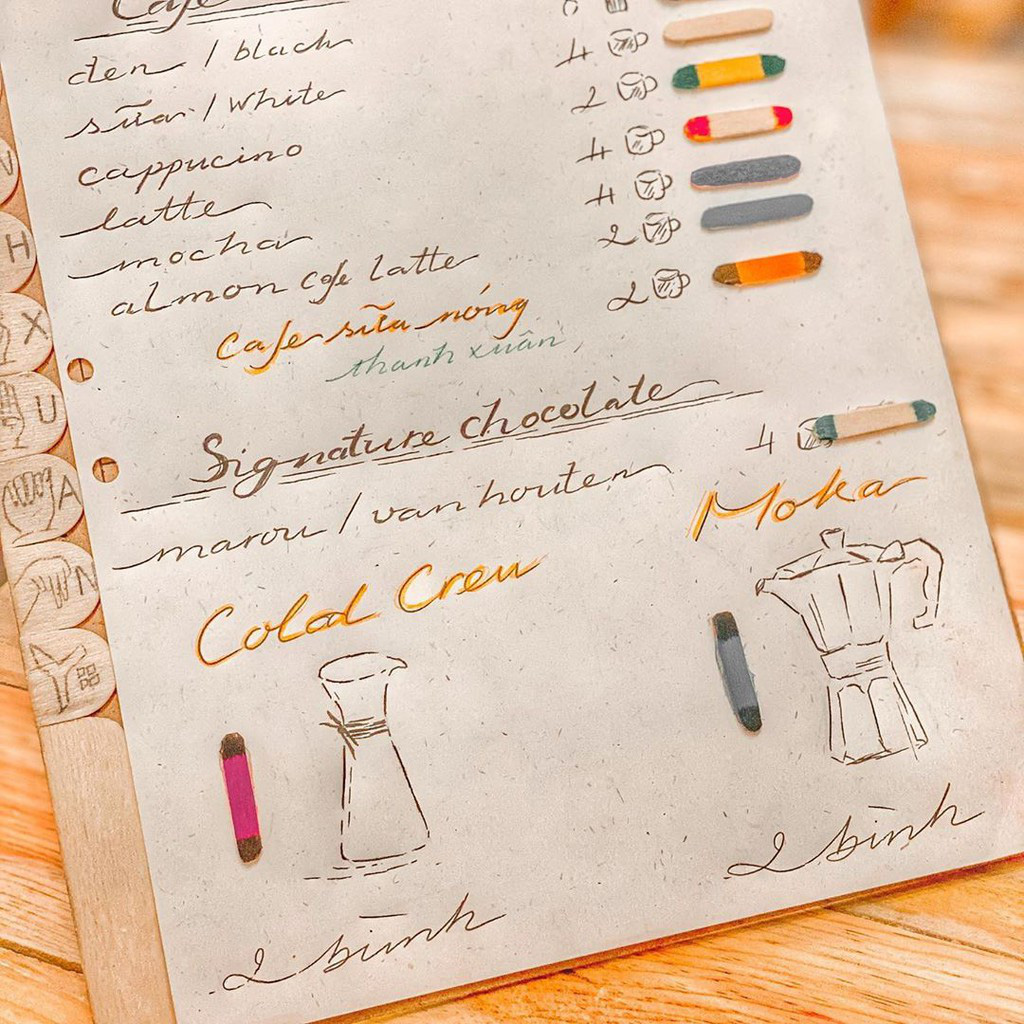 Cafe
den / black
sữa / white 4
cappucino 2
latte 4
mocha 4
almon cafe latte 2
cafe sữa nóng 2
thanh xuân
Signature chocolate
marou / van houten 4
Cold Crew
Moka
2 bình
2 bình
V
H
X
U
A
N
Y